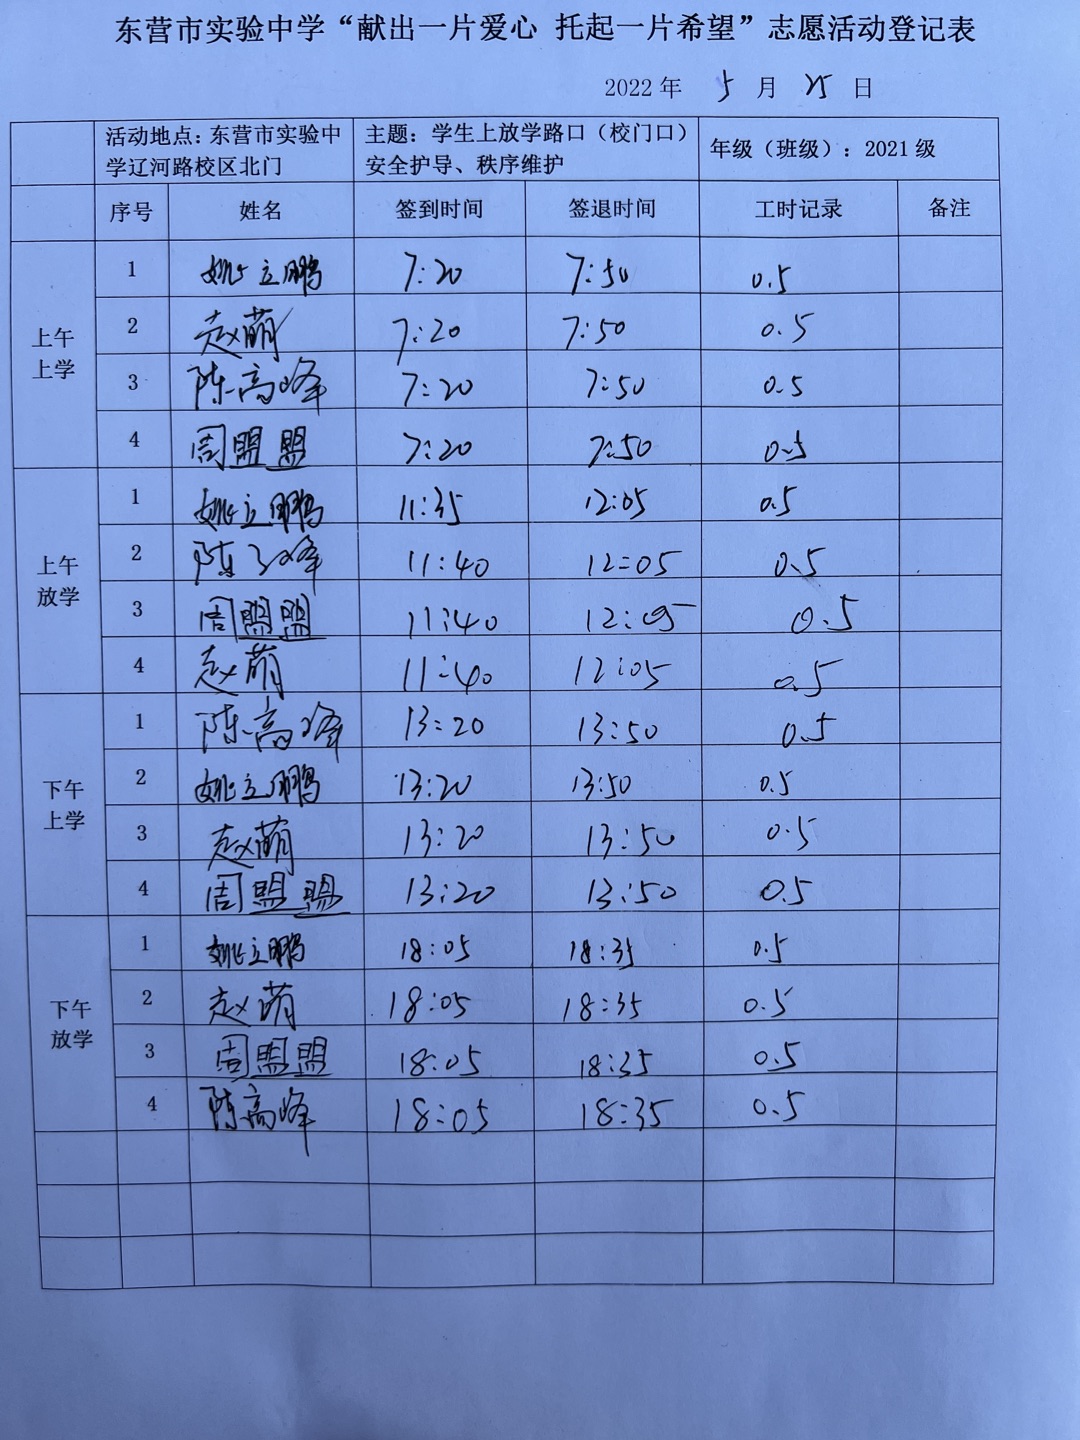 东营市实验中学“献出一片爱心 托起一片希望”志愿活动登记表
2022年 5月 25日
活动地点：东营市实验中学辽河路校区北门 主题：学生上放学路口（校门口）安全护导、秩序维护 年级（班级）：2021级
序号 姓名 签到时间 签退时间 工时记录 备注
上午上学
1 姚立鹏 7:20 7:50 0.5
2 赵萌 7:20 7:50 0.5
3 陈高峰 7:20 7:50 0.5
4 周盟盟 7:20 7:50 0.5
上午放学
1 姚立鹏 11:35 12:05 0.5
2 陈高峰 11:40 12:05 0.5
3 周盟盟 11:40 12:05 0.5
4 赵萌 11:40 12:05 0.5
下午上学
1 陈高峰 13:20 13:50 0.5
2 姚立鹏 13:20 13:50 0.5
3 赵萌 13:20 13:50 0.5
4 周盟盟 13:20 13:50 0.5
下午放学
1 姚立鹏 18:05 18:35 0.5
2 赵萌 18:05 18:35 0.5
3 周盟盟 18:05 18:35 0.5
4 陈高峰 18:05 18:35 0.5